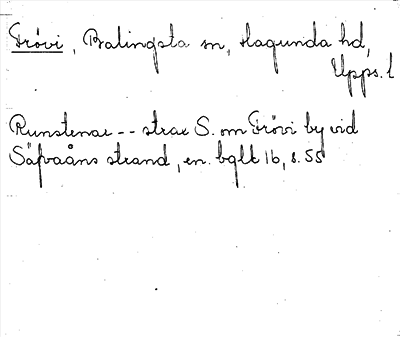 Frövi, Balingsta sn, Hagunda hd,
Upps. l
Runstenar -- strax S. om Frövi by vid
Säfvaåns strand, en. bglt 16, s. 55